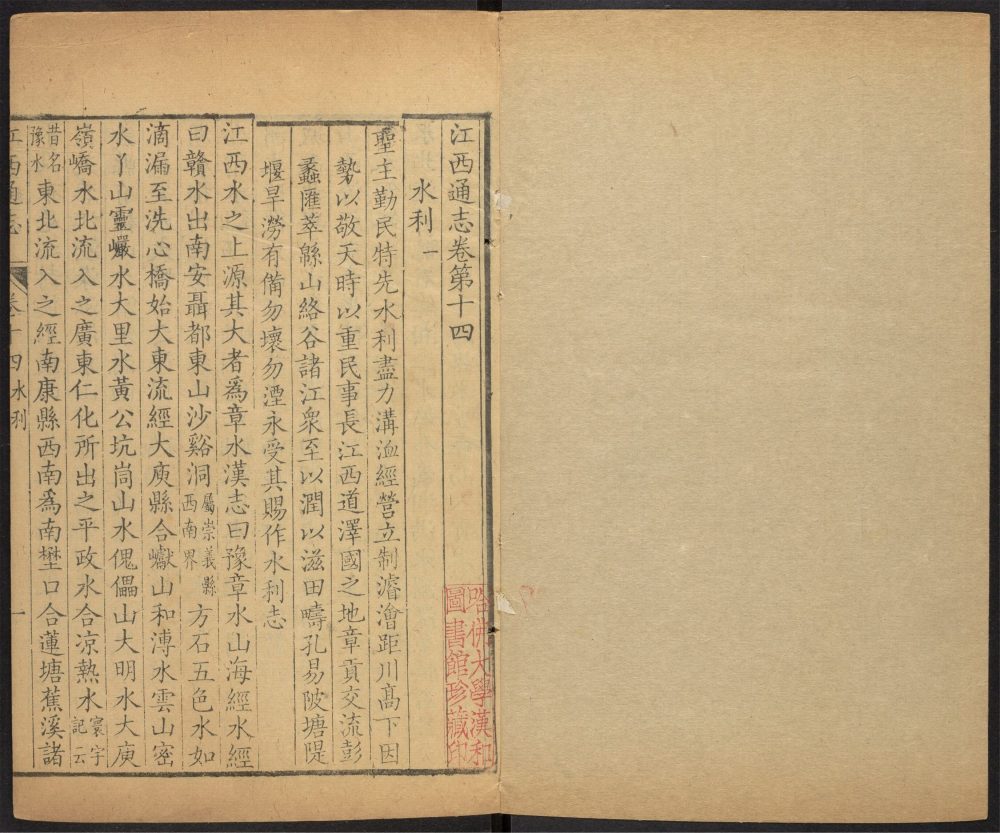 江西通志卷第十四
水利一
聖主勤民特先水利盡力溝洫經營立制濬澮距川高下因
勢以敬天時以重民事長江西道澤國之地章貢交流彭
蠡匯萃緜山絡谷諸江衆至以潤以滋田疇孔易陂塘隄
堰旱澇有備勿壞勿湮永受其賜作水利志
江西水之上源其大者爲章水漢志曰豫章水山海經水經
曰贛水出南安聶都東山沙谿洞屬崇義縣西南界方石五色水如
滴漏至洗心橋始大東流經大庾縣合巘山和溥水雲山密
水丫山靈巖水大里水黃公坑峝山水傀儡山大明水大庾
嶺嶠水北流入之廣東仁化所出之平政水合凉熱水寰宇記云
昔名豫水東北流入之經南康縣西南爲南壄口合蓮塘蕉溪諸
江西通志 卷十四 水利 一
哈佛大學漢和
圖書館珍藏印